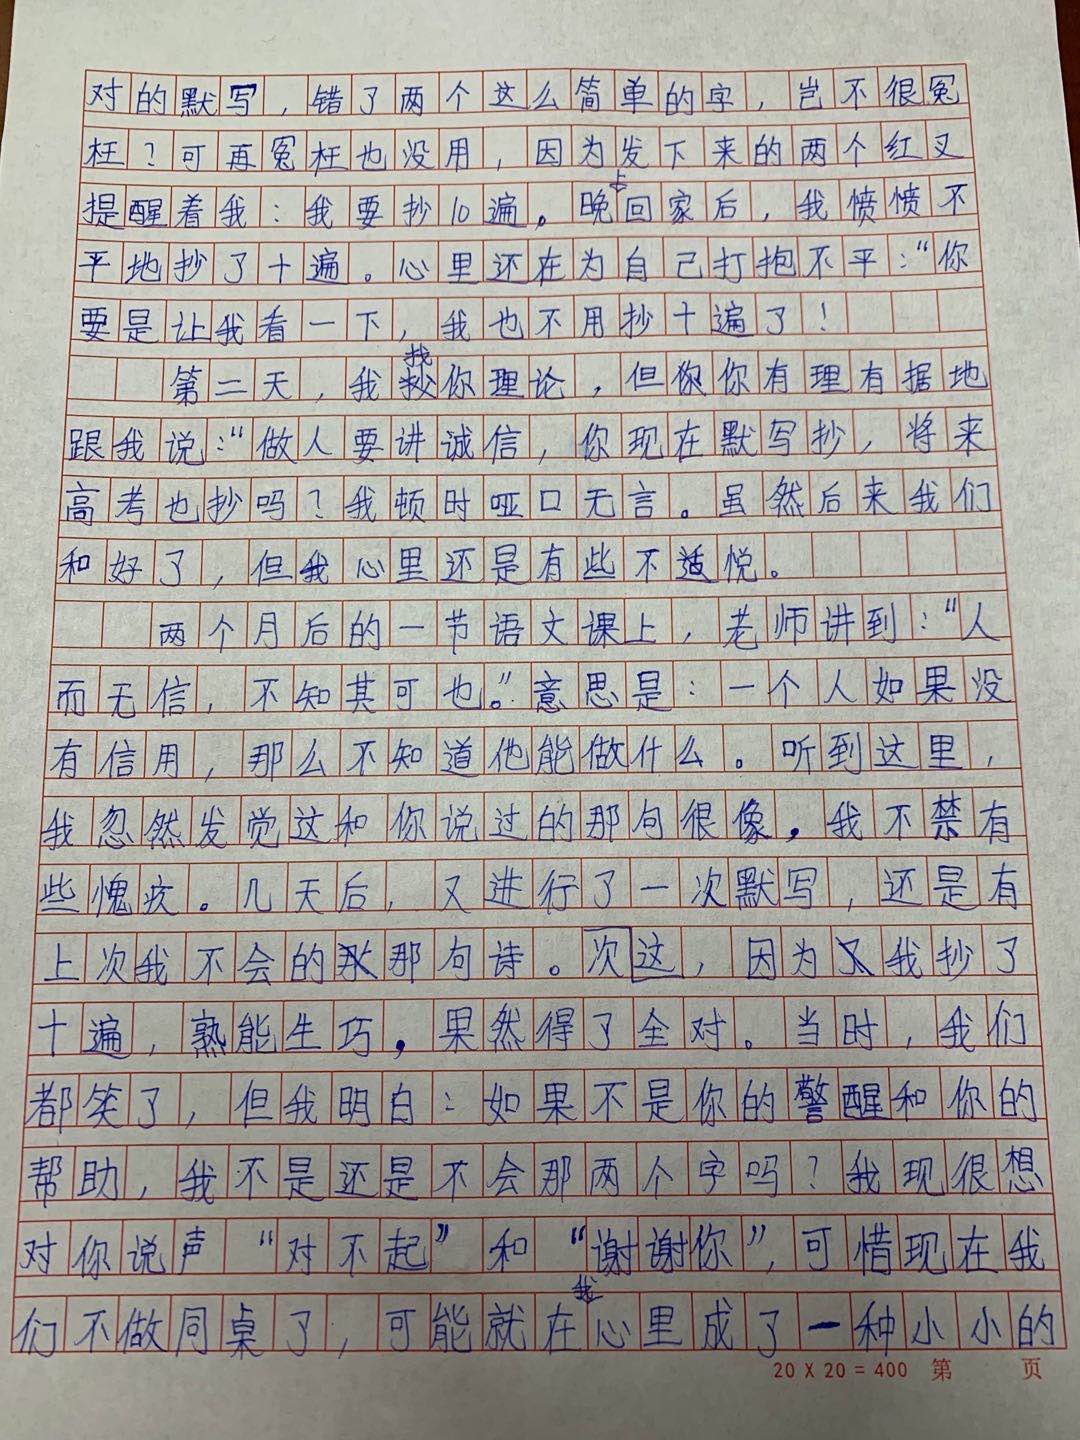 对的默写，错了两个这么简单的字，岂不很冤
枉？可再冤枉也没用，因为发下来的两个红叉
提醒着我：我要抄10遍。晚上回家后，我愤愤不
平地抄了十遍。心里还在为自己打抱不平：“你
要是让我看一下，我也不用抄十遍了！
第二天，我找你理论，但你你有理有据地
跟我说：“做人要讲诚信，你现在默写抄，将来
高考也抄吗？我顿时哑口无言。虽然后来我们
和好了，但我心里还是有些不适悦。
两个月后的一节语文课上，老师讲到：“人
而无信，不知其可也。”意思是：一个人如果没
有信用，那么不知道他能做什么。听到这里，
我忽然发觉这和你说过的那句很像，我不禁有
些愧疚。几天后，又进行了一次默写，还是有
上次我不会的那句诗。次这，因为我抄了
十遍，熟能生巧，果然得了全对。当时，我们
都笑了，但我明白：如果不是你的警醒和你的
帮助，我不是还是不会那两个字吗？我现很想
对你说声“对不起”和“谢谢你”，可惜现在我
们不做同桌了，可能就在我心里成了一种小小的
20 X 20 = 400 第 页